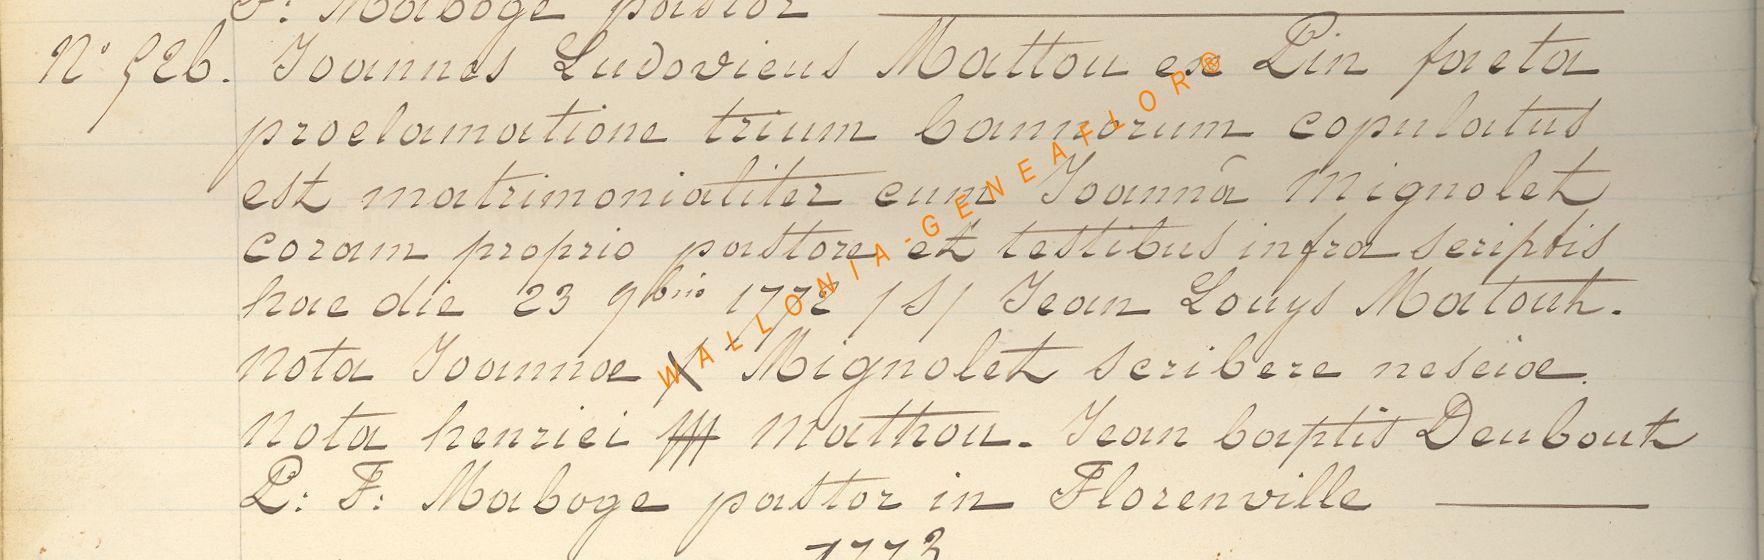 F: Maboge pastor
N° 526. Joannes Ludovicus Mattou ex Pin facta
proclamatione trium bannorum copulatus
est matrimonialiter cum Joannâ Mignolet
coram proprio pastore et testibus infra scriptis
hac die 23 9bris 1772 /S/ Jean Louys Matouh.
Nota Joannæ X Mignolet scribere nesciæ.
Nota henrici Mathou. Jean baptis Deubouh
P: F: Maboge pastor in Florenville
1773
WALLONIA-GENEAFLOR®